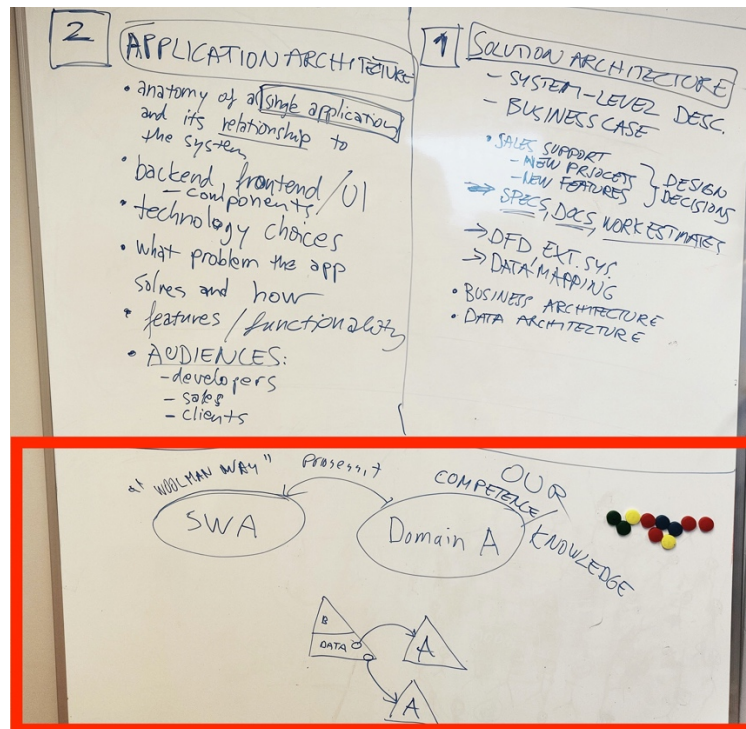 2
APPLICATION ARCHITECTURE
• anatomy of a single application
and its relationship to
the system
• backend, frontend/UI
– components
• technology choices
• what problem the app
solves and how
• features / functionality
• AUDIENCES:
– developers
– sales
– clients
1
SOLUTION ARCHITECTURE
– SYSTEM-LEVEL DESC.
– BUSINESS CASE
• SALES SUPPORT
– NEW PROJECTS
– NEW FEATURES
DESIGN
DECISIONS
→ SPECS, DOCS, WORK ESTIMATES
→ DFD EXT. SYS.
→ DATA MAPPING
• BUSINESS ARCHITECTURE
• DATA ARCHITECTURE
"WOOLMAN WAY"
Prosessit
OUR
COMPETENCE/
KNOWLEDGE
SWA
Domain A
B
DATA
A
A